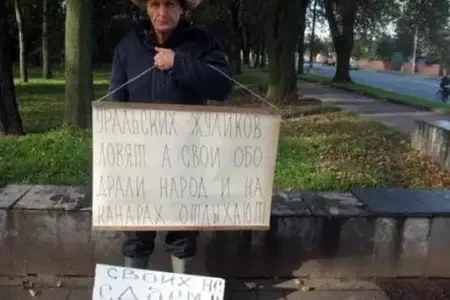 УРАЛЬСКИХ ЖУЛИКОВ
ЛОВЯТ А СВОИ ОБО
ДРАЛИ НАРОД И НА
КАНАРАХ ОТДЫХАЮТ
СВОИХ НЕ
СДАЕМ